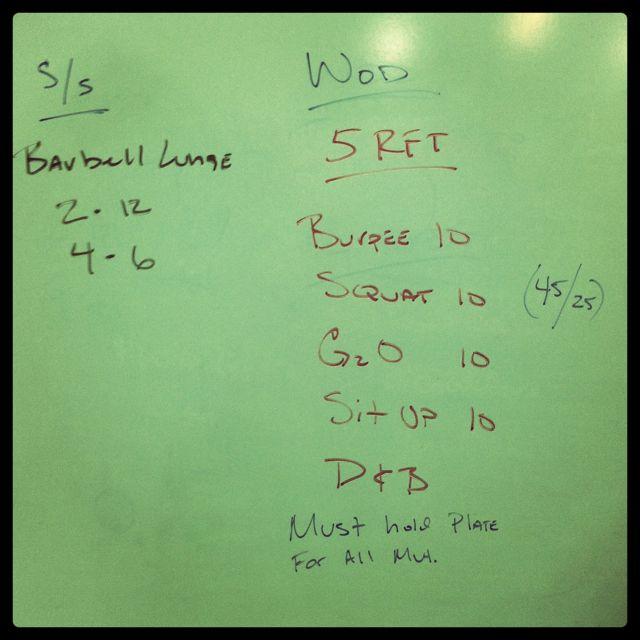 S/s
Barbell Lunge
2 · 12
4 · 6
WOD
5 RFT
Burpee 10
Squat 10 (45/25)
G2O 10
Sit Up 10
D & B
Must hold Plate
For All Mvt.